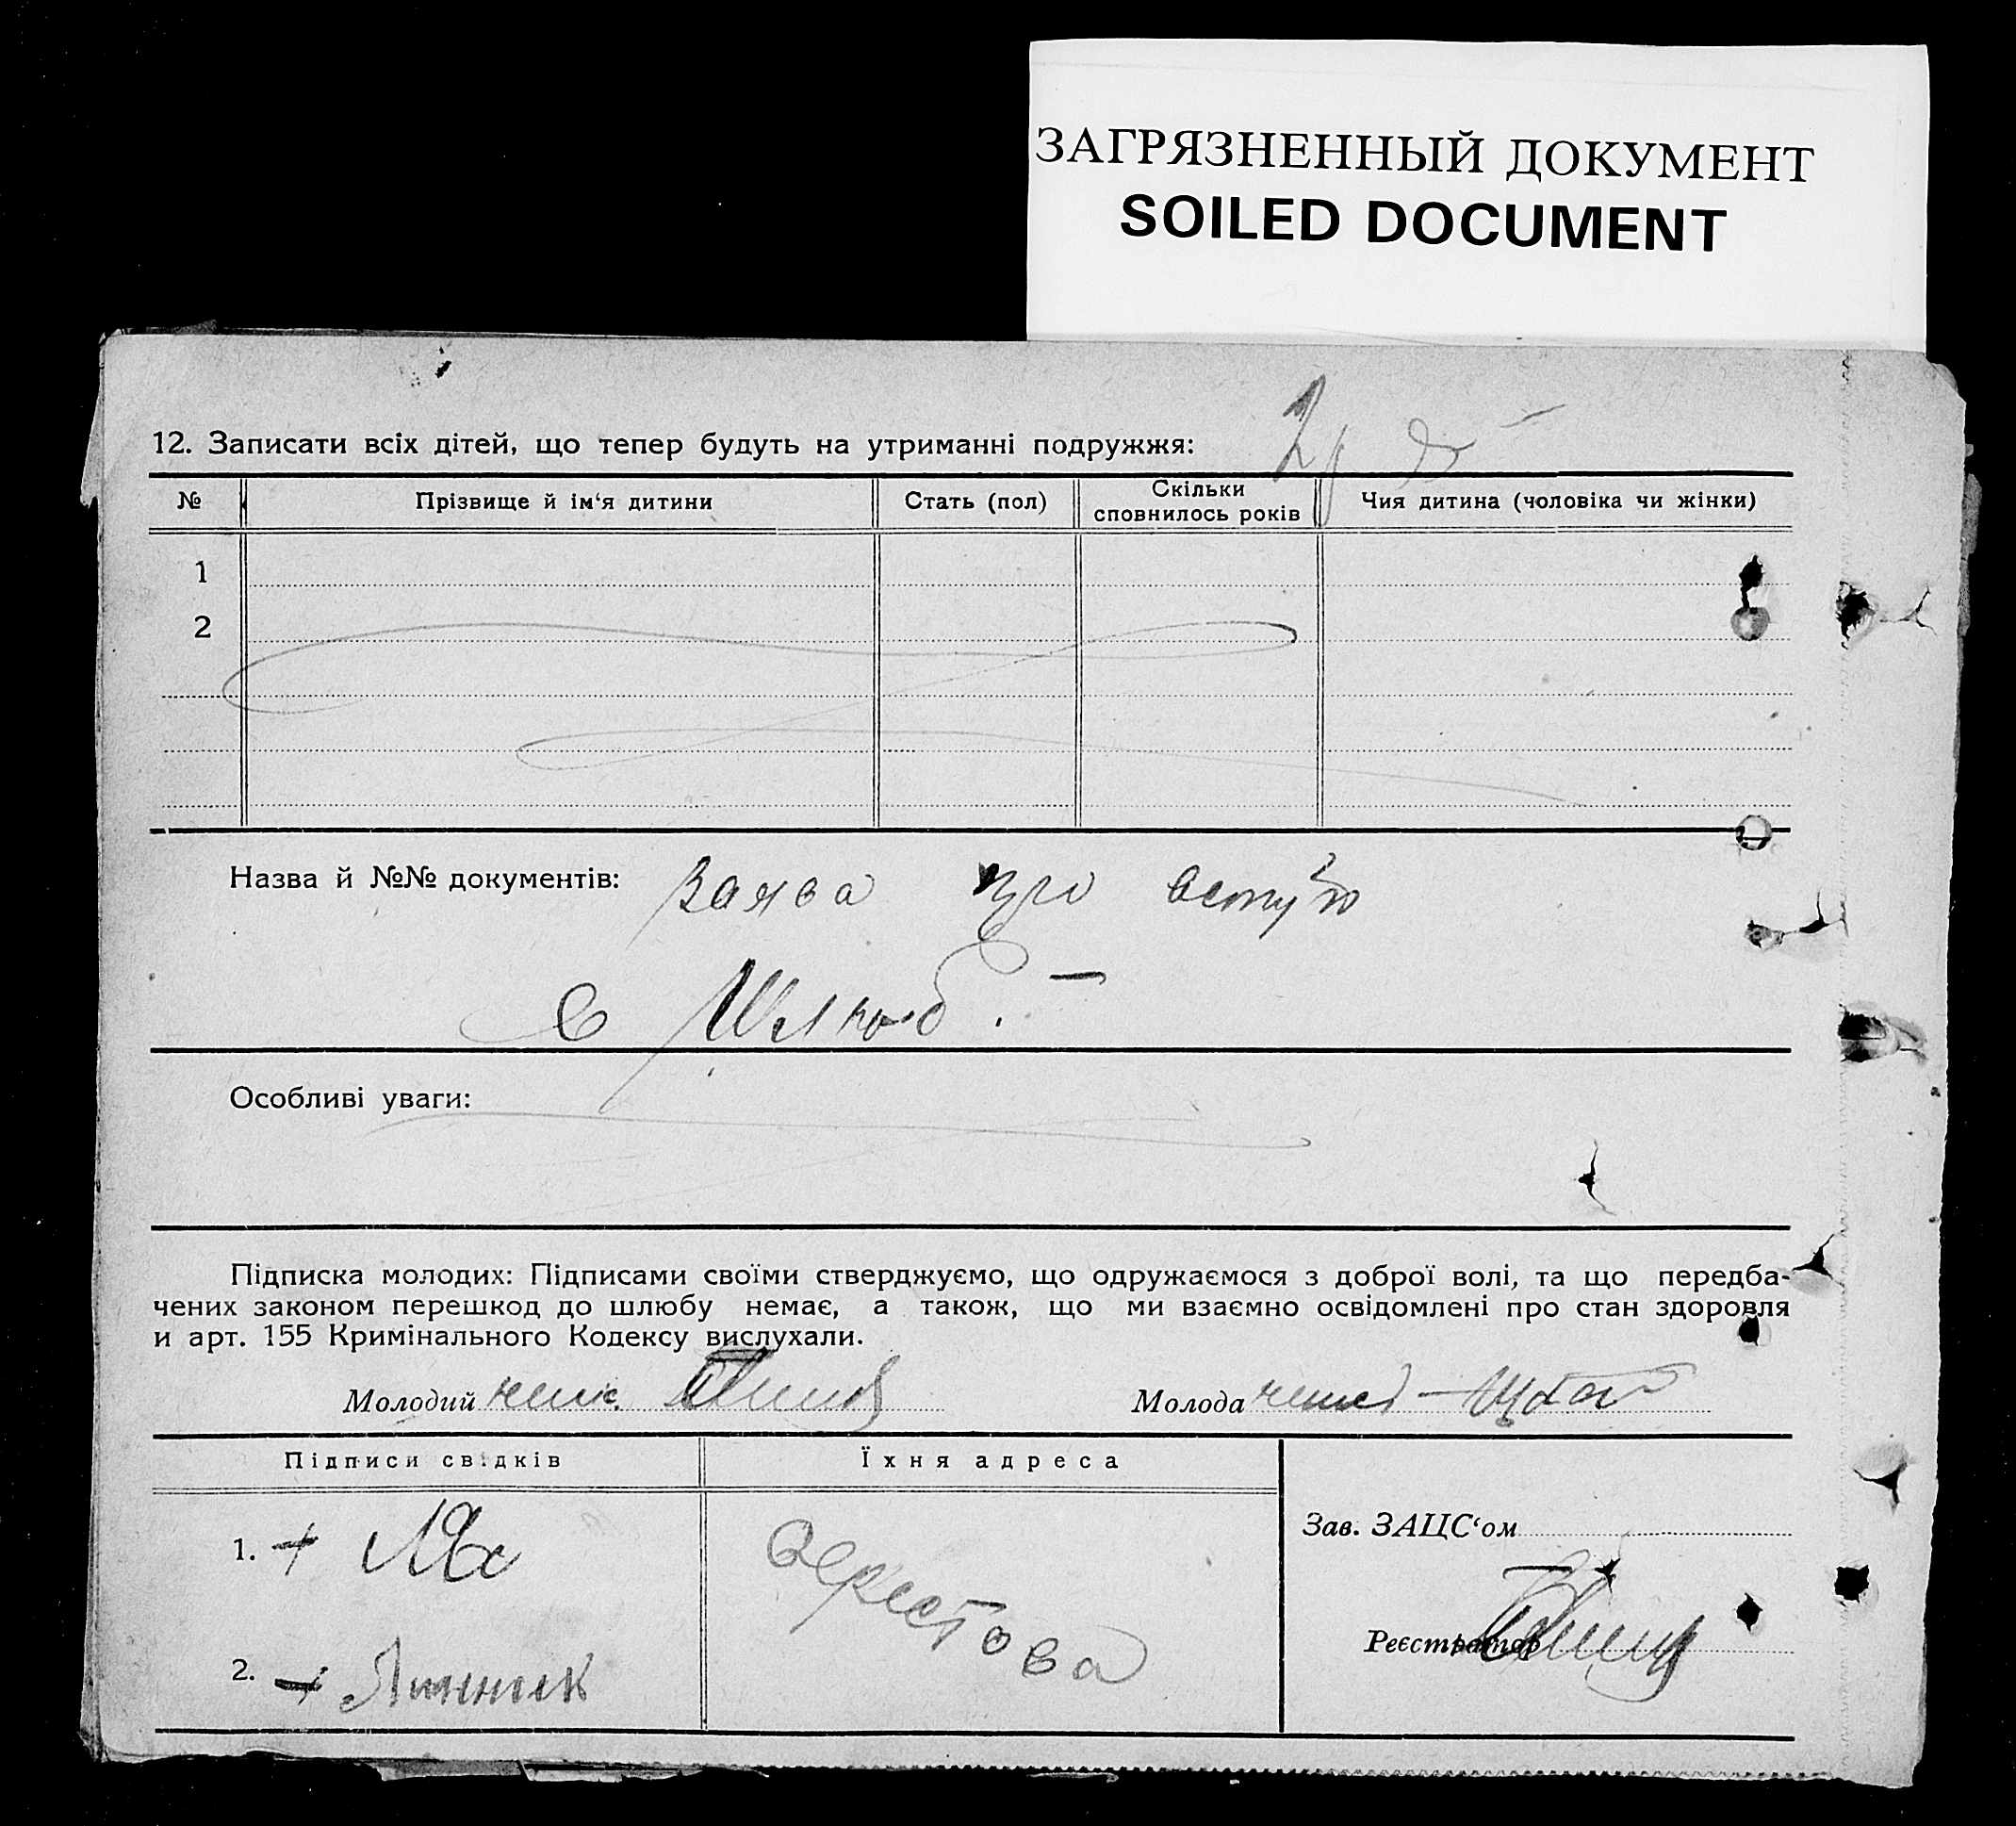 ЗАГРЯЗНЕННЫЙ ДОКУМЕНТ
SOILED DOCUMENT
12. Записати всіх дітей, що тепер будуть на утриманні подружжя:
№ Прізвище й ім‘я дитини Стать (пол) Скільки сповнилось років Чия дитина (чоловіка чи жінки)
1
2
Назва й №№ документів: Заява про вступ
в Шлюб. —
Особливі уваги:
Підписка молодих: Підписами своїми стверджуємо, що одружаємося з доброї волі, та що передба-
чених законом перешкод до шлюбу немає, а також, що ми взаємно освідомлені про стан здоровля
и арт. 155 Кримінального Кодексу вислухали.
Молодий Молода
Підписи свідків Їхня адреса
Зав. ЗАЦС‘ом
1. +
2. +
Реєстратор